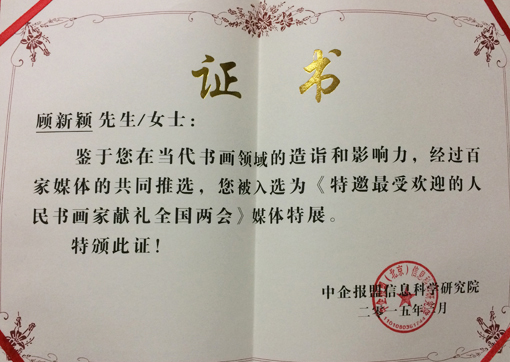 证书
顾新颖 先生/女士：
鉴于您在当代书画领域的造诣和影响力，经过百
家媒体的共同推选，您被入选为《特邀最受欢迎的人
民书画家献礼全国两会》媒体特展。
特颁此证！
中企报盟信息科学研究院
二〇一五年 月